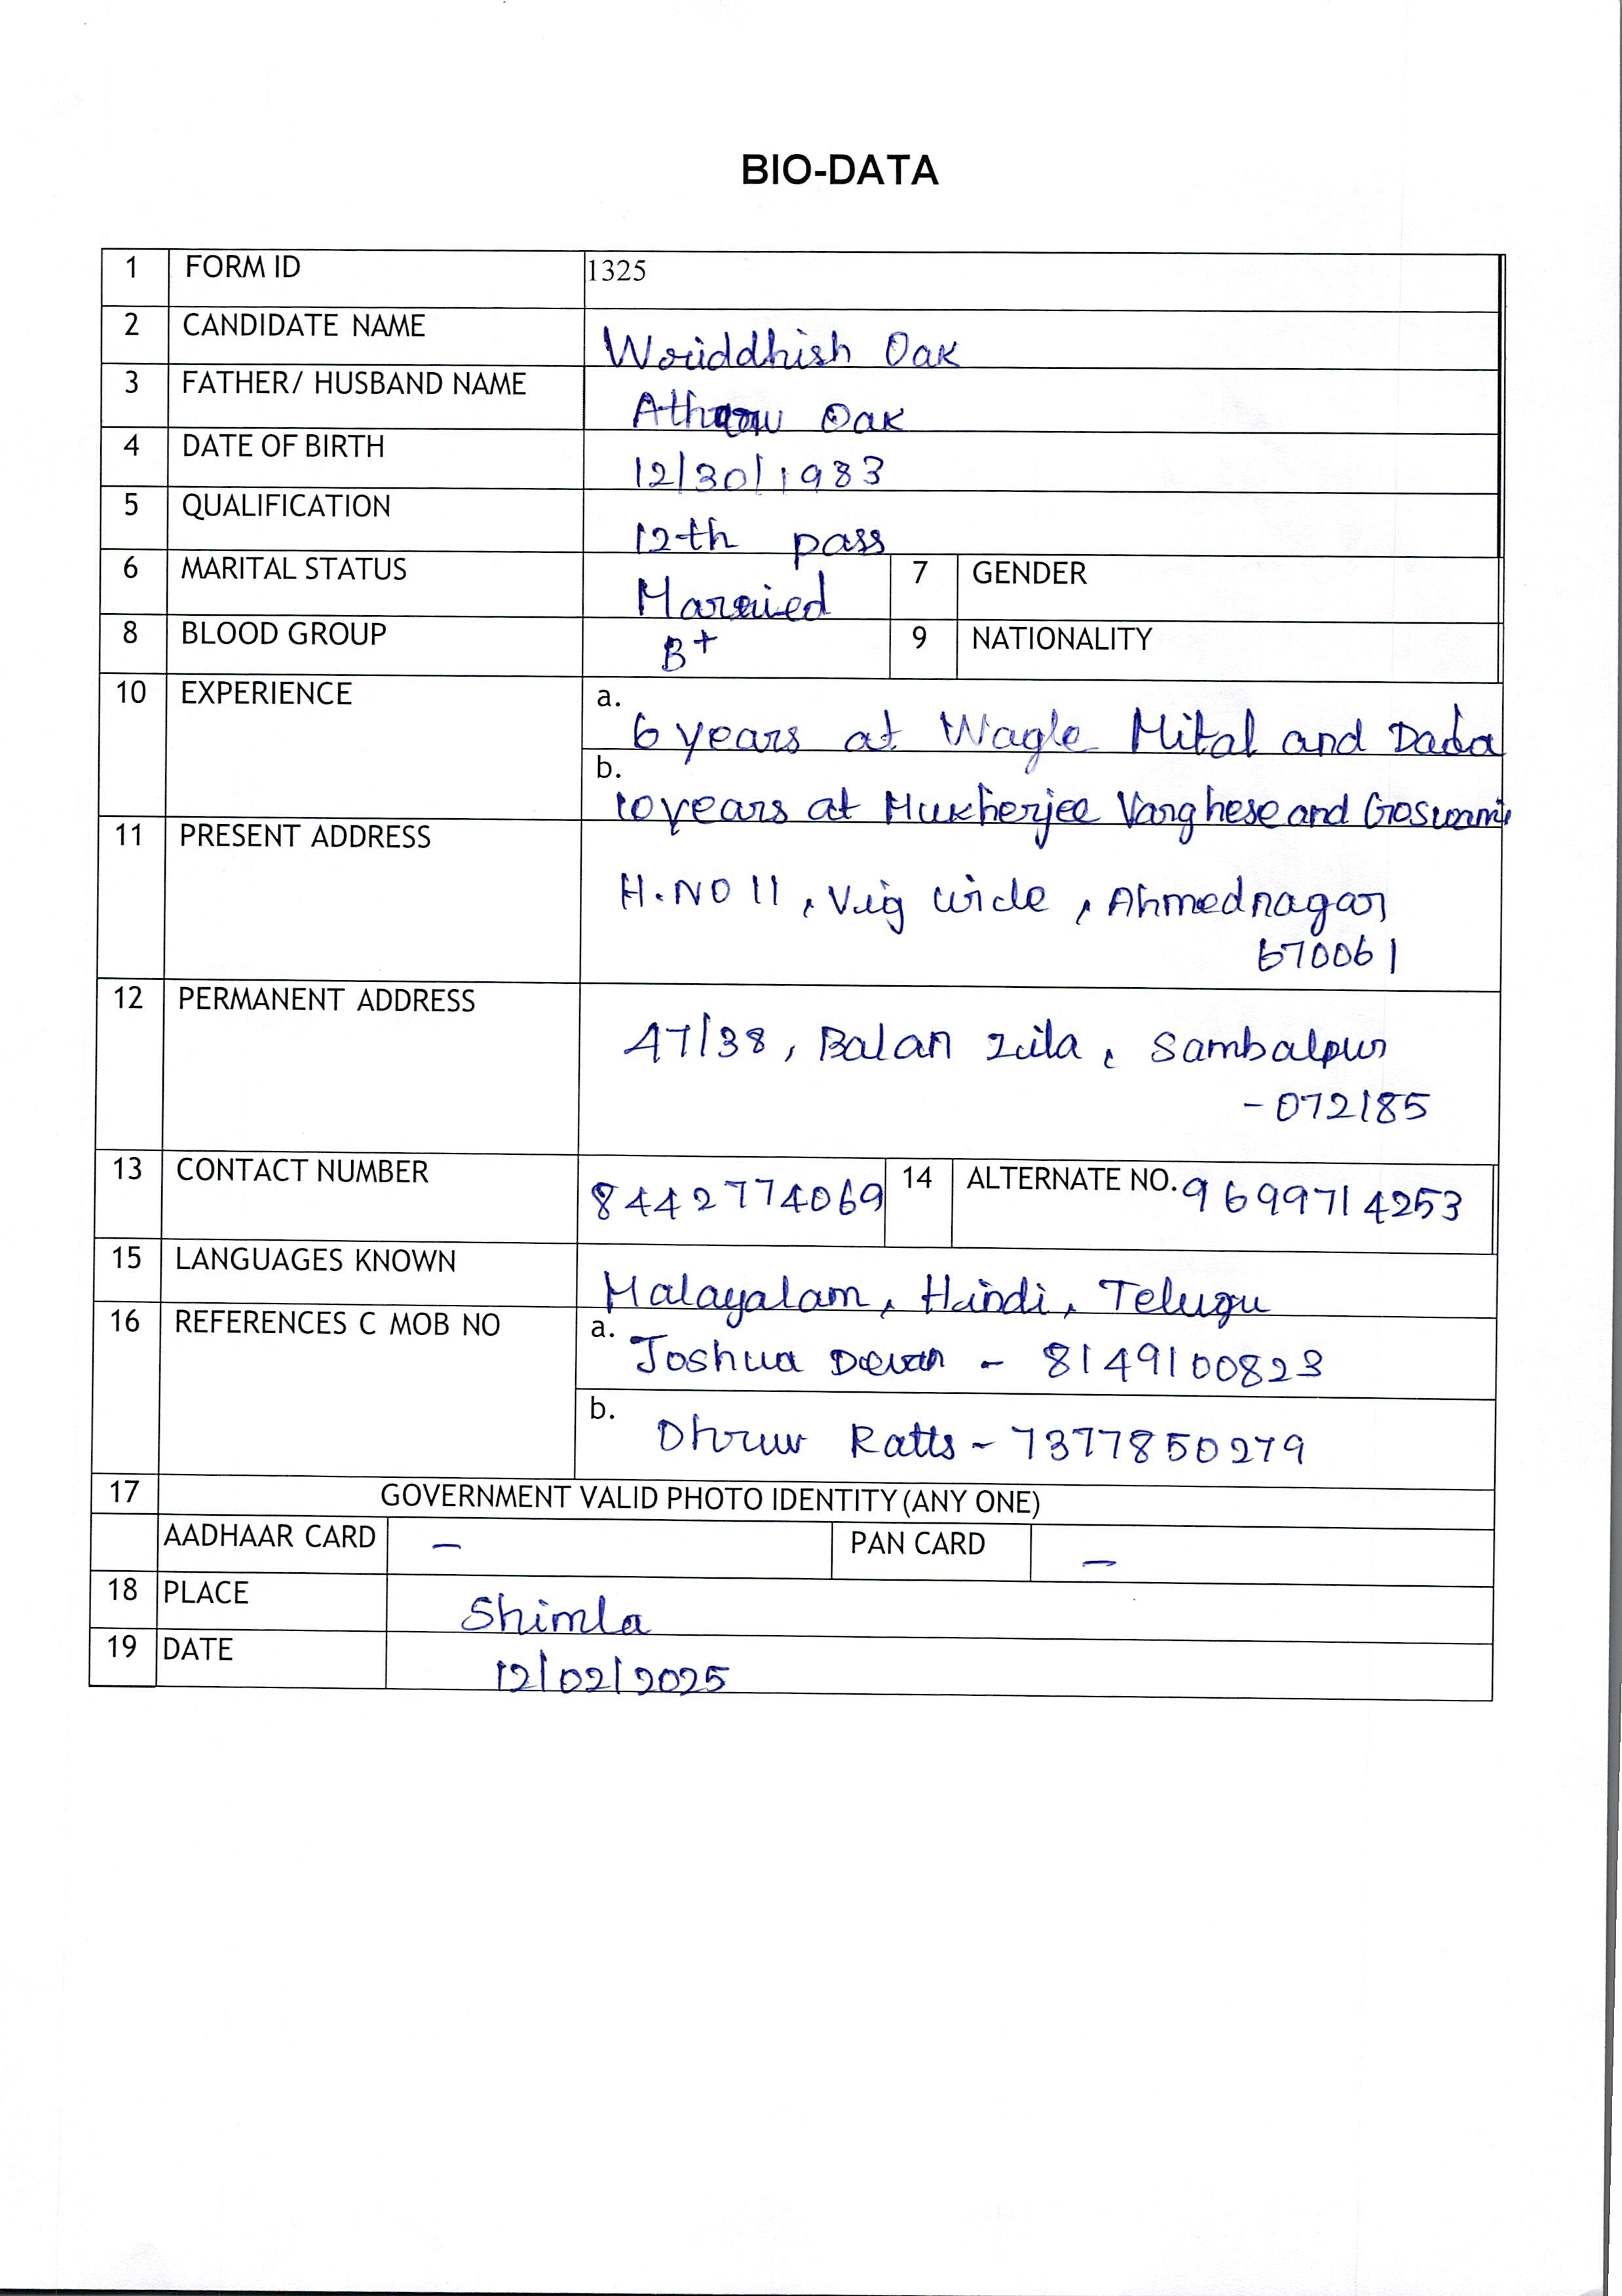 BIO-DATA
1 FORM ID 1325
2 CANDIDATE NAME Wriddhish Oak
3 FATHER/ HUSBAND NAME Oak
4 DATE OF BIRTH 12/30/1983
5 QUALIFICATION 12th pass
6 MARITAL STATUS Married 7 GENDER
8 BLOOD GROUP B+ 9 NATIONALITY
10 EXPERIENCE a. 6 years at Wagle Mital and Dada
b. 10 years at Mukherjee Varghese and Goswami
11 PRESENT ADDRESS
H.NO 11, Vig Circle, Ahmednagar
670061
12 PERMANENT ADDRESS
47/38, Balan Zila, Sambalpur
-072185
13 CONTACT NUMBER 8442774069 14 ALTERNATE NO. 9699714253
15 LANGUAGES KNOWN Malayalam, Hindi, Telugu
16 REFERENCES C MOB NO a. Joshua Dewan - 8149100823
b. Dhruv Ratts - 7377850279
17 GOVERNMENT VALID PHOTO IDENTITY (ANY ONE)
AADHAAR CARD - PAN CARD -
18 PLACE Shimla
19 DATE 12/02/2025